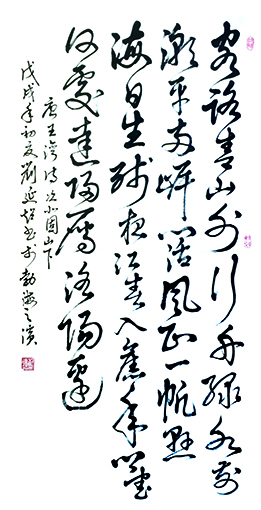 客路青山外行舟綠水前
潮平兩岸闊風正一帆懸
海日生殘夜江春入舊年鄉書
何處達歸雁洛陽邊
唐王灣詩次北固山下
戊戌年初夏劉延書於勃海之濱